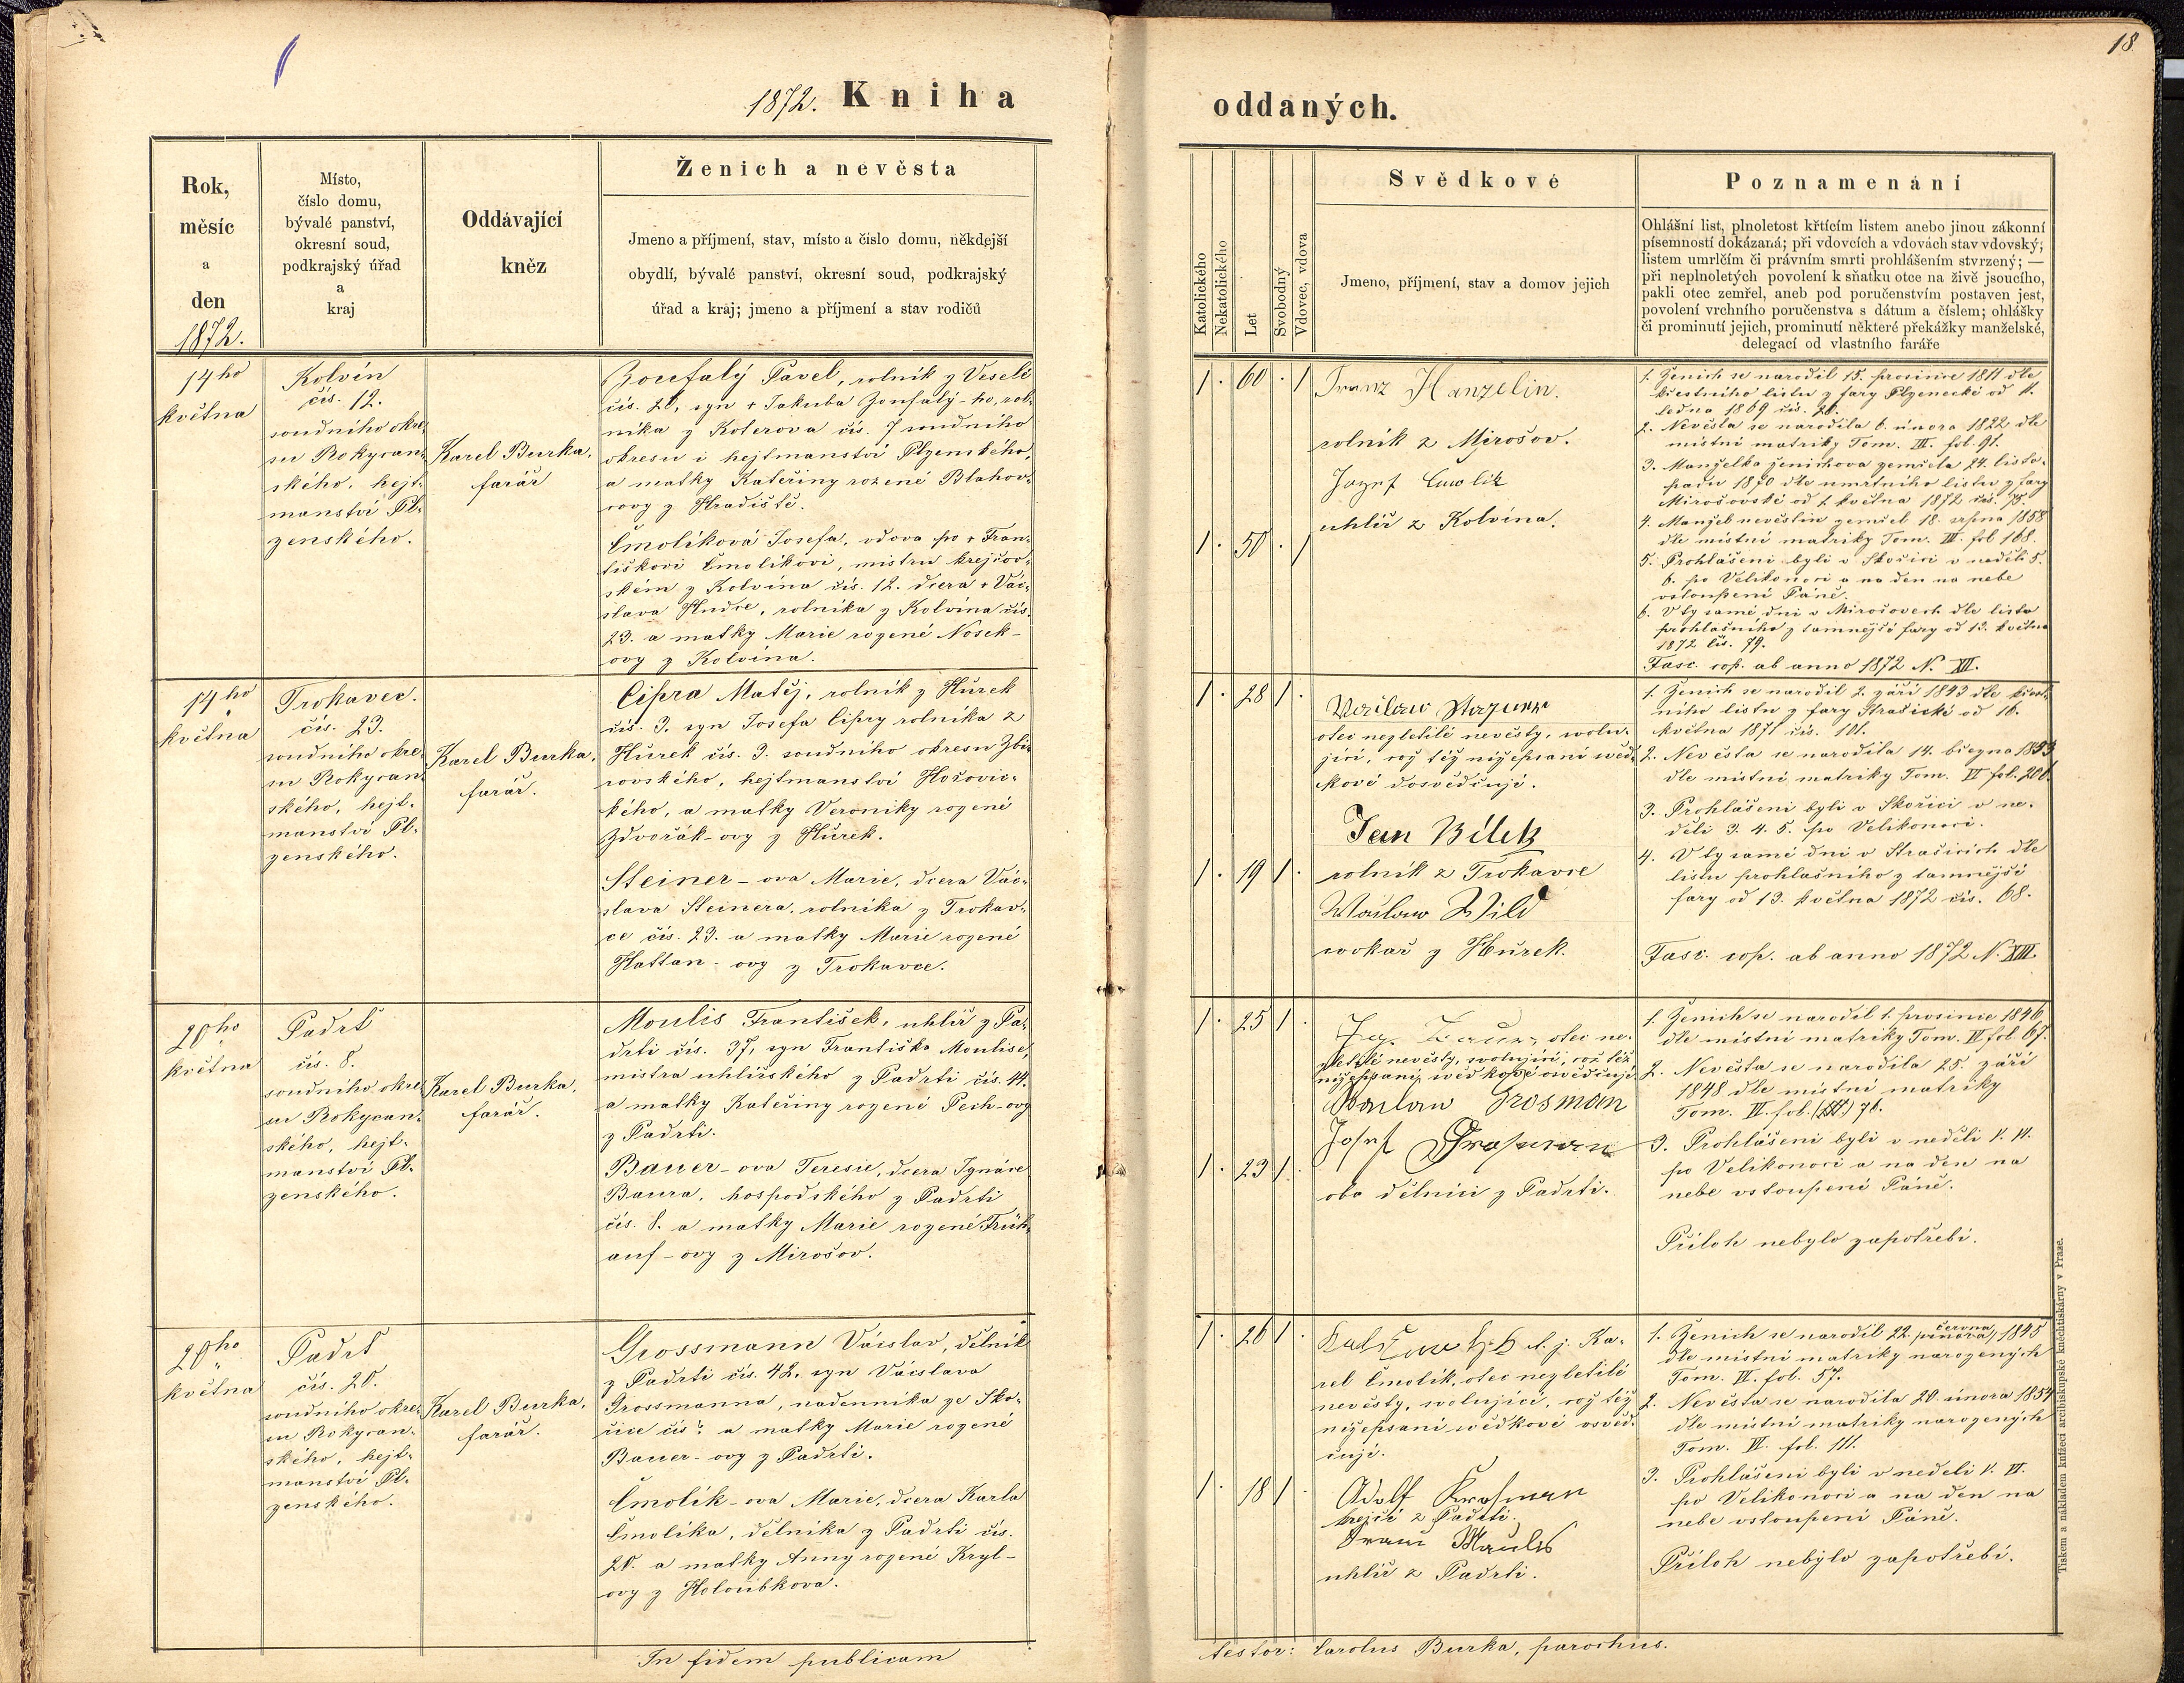 18.
1872. Kniha
oddaných.
Rok,
měsíc
a
den
1872.
Místo,
číslo domu,
bývalé panství,
okresní soud,
podkrajský úřad
a
kraj
Oddávající
kněz
Ženich a nevěsta
Jmeno a příjmení, stav, místo a číslo domu, někdejší
obydlí, bývalé panství, okresní soud, podkrajský
úřad a kraj; jmeno a příjmení a stav rodičů
Katolického
Nekatolického
Let
Svobodný
Vdovec, vdova
Svědkové
Jmeno, příjmení, stav a domov jejich
Poznamenání
Ohlášní list, plnoletost křticím listem anebo jinou zákonní
písemností dokázaná; při vdovcích a vdovách stav vdovský;
listem umrlčím či právním smrti prohlášením stvrzený; —
při neplnoletých povolení k sňatku otce na živě jsoucího,
pakli otec zemřel, aneb pod poručenstvím postaven jest,
povolení vrchního poručenstva s dátum a číslem; ohlášky
či prominutí jejich, prominutí některé překážky manželské,
delegací od vlastního faráře
14ho
května
Kolvín
čís. 12.
soudního okre-
su Rokycan-
ského, hejt-
manství Pl-
zenského.
Karel Burka,
farář
Zoufalý Pavel, rolník z Veselé
čís. 20, syn + Jakuba Zoufalý-ho, rol-
níka z Koterova čís. 7 soudního
okresu i hejtmanství Plzenského,
a matky Kateřiny rozené Blahov-
covy z Hradiště.
Čmolíková Josefa, vdova po + Fran-
tiškovi Čmolíkovi, mistru krejčov-
ském z Kolvína čís. 12. dcera + Vác-
slava Hudce, rolníka z Kolvína čís.
23. a matky Marie rozené Nosek-
ovy z Kolvína.
1. 60 . 1
1. 50 . 1
Franz Hanzelin.
rolník z Mirošov.
Jozef
uhlíř z Kolvína.
1. Ženich se narodil 15. prosince 1811 dle
křestního listu z fary Plzenecké od 11.
ledna 1869 čís. 20.
2. Nevěsta se narodila 6. února 1822 dle
místní matriky Tom. III. fol. 91.
3. Manželka ženichova zemřela 24. listo-
padu 1870 dle umrtního listu z fary
Mirošovské od 1. května 1872 čís. 75.
4. Manžel nevěstin zemřel 18. srpna 1858
dle místní matriky Tom. III. fol 168.
5. Prohlášeni byli v Skořici v neděli 5.
6. po Velikonoci a na den na nebe
vstoupení Páně.
6. V ty samé dni v Mirošovech dle listu
prohlašního z tamnější fary od 13. května
1872 čís. 79.
Fasc. cop. ab anno 1872 N. XII.
14ho
května
Trokavec.
čís. 23.
soudního okre-
su Rokycan-
ského, hejt-
manství Pl-
zenského.
Karel Burka,
farář.
Cipra Matěj, rolník z Hůrek
čís. 3. syn Josefa Cipry rolníka z
Hůrek čís. 3. soudního okresu Zbi-
rovského, hejtmanství Hořovic-
kého, a matky Veroniky rozené
Zdvořák-ovy z Hůrek.
Steiner-ova Marie, dcera Vác-
slava Steinera, rolníka z Trokav-
ce čís. 23. a matky Marie rozené
Hattan-ovy z Trokavce.
1. 28 1 .
1. 19 1 .
otec nezletilé nevěsty, svolu-
jící, což též nížepsaní svěd-
kové dosvědčují.
Jan Bílek
rolník z Trokavce
Waclaw Wild
cvokař z Hůrek.
1. Ženich se narodil 2. září 1843 dle křest-
ního listu z fary Strašické od 16.
května 1871 čís. 101.
2. Nevěsta se narodila 14. března 1853
dle místní matriky Tom. IV fol. 200.
3. Prohlášeni byli v Skořici v ne-
děli 3. 4. 5. po Velikonoci.
4. V ty samé dni v Strašicích dle
listu prohlašního z tamnější
fary od 13. května 1872 čís. 68.
Fasc. cop. ab anno 1872 N. XIII.
20ho
května
Padrť
čís. 8.
soudního okre-
su Rokycan-
ského, hejt-
manství Pl-
zenského.
Karel Burka,
farář.
Moulis František, uhlíř z Pa-
drti čís. 37, syn Františka Moulise,
mistra uhlířského z Padrti čís. 44.
a matky Kateřiny rozené Pech-ovy
z Padrti.
Bauer-ova Teresie, dcera Ignáce
Baura, hospodského z Padrti
čís. 8. a matky Marie rozené Früh-
auf-ovy z Mirošov.
1. 25 1 .
1. 23 1 .
otec ne-
zletilé nevěsty, svolující, což též
nížepsaní svědkové osvědčují.
Waclaw Grosman
Josef Grosmann
oba dělníci z Padrti.
1. Ženich se narodil 1. prosince 1846
dle místní matriky Tom. IV fol. 67.
2. Nevěsta se narodila 25. září
1848 dle místní matriky
Tom. IV. fol. 76.
3. Prohlášeni byli v neděli V. VI.
po Velikonoci a na den na
nebe vstoupení Páně.
Příloh nebylo zapotřebí.
20ho
května
Padrť
čís. 20.
soudního okre-
su Rokycan-
ského, hejt-
manství Pl-
zenského.
Karel Burka,
farář.
Grossmann Václav, dělník
z Padrti čís. 42, syn Václava
Grossmanna, nádenníka ze Sko-
řice čís ? a matky Marie rozené
Bauer-ovy z Padrti.
Čmolík-ova Marie, dcera Karla
Čmolíka, dělníka z Padrti čís.
20. a matky Anny rozené Kryl-
ovy z Holoubkova.
1. 26 1 .
1. 18 1 .
t. j. Ka-
rel Čmolík, otec nezletilé
nevěsty, svolující, což též
nížepsaní svědkové osvěd-
čují.
Adolf Krosman
krejčí z Padrti.
Franc Maulis
uhlíř z Padrti.
1. Ženich se narodil 22. června 1845
dle místní matriky narozených
Tom. IV. fol. 57.
2. Nevěsta se narodila 20. února 1854
dle místní matriky narozených
Tom. VI. fol. 111.
3. Prohlášeni byli v neděli V. VI.
po Velikonoci a na den na
nebe vstoupení Páně.
Příloh nebylo zapotřebí.
In fidem publicam
testor: Carolus Burka, parochus.
Tiskem a nákladem knížecí arcibiskupské knihtiskárny v Praze.